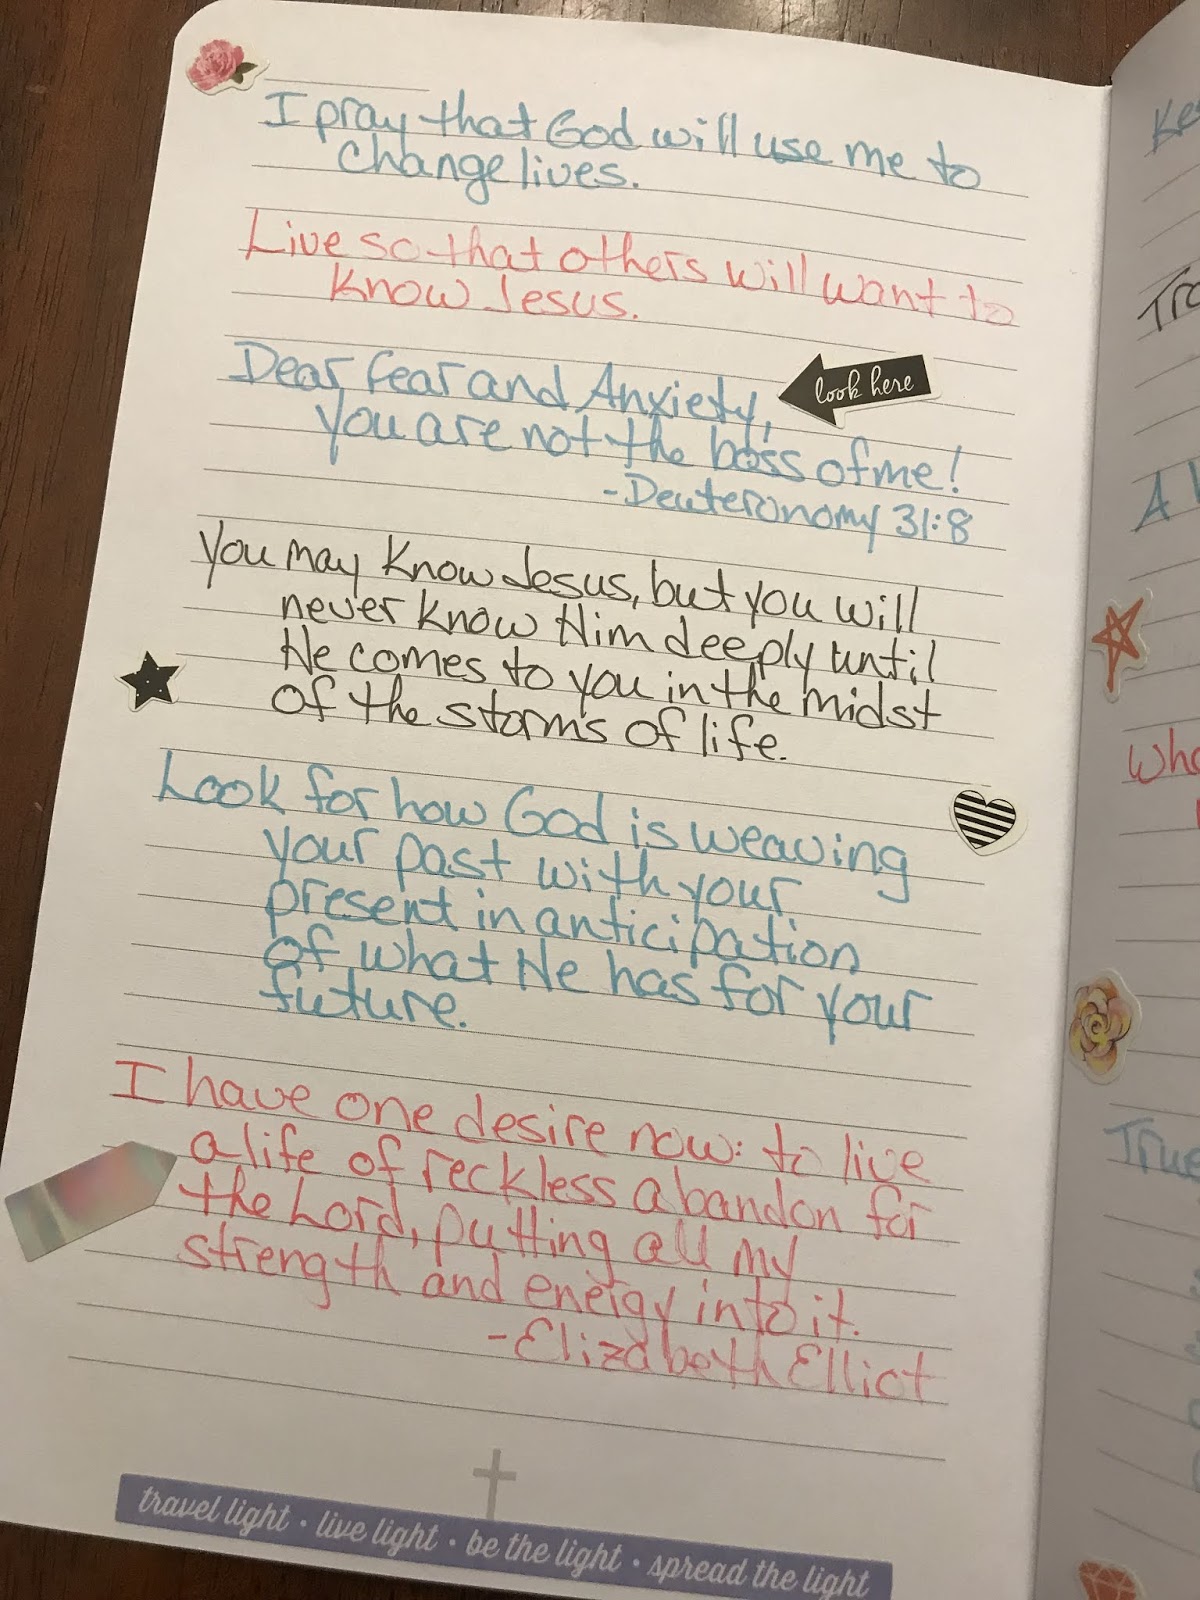 I pray that God will use me to
change lives.
Live so that others will want to
know Jesus.
Dear Fear and Anxiety,
look here
you are not the boss of me!
-Deuteronomy 31:8
You may know Jesus, but you will
never know Him deeply until
He comes to you in the midst
of the storms of life.
Look for how God is weaving
your past with your
present in anticipation
of what He has for your
future.
I have one desire now: to live
a life of reckless abandon for
the Lord, putting all my
strength and energy into it.
-Elizabeth Elliot
travel light • live light • be the light • spread the light
A
True